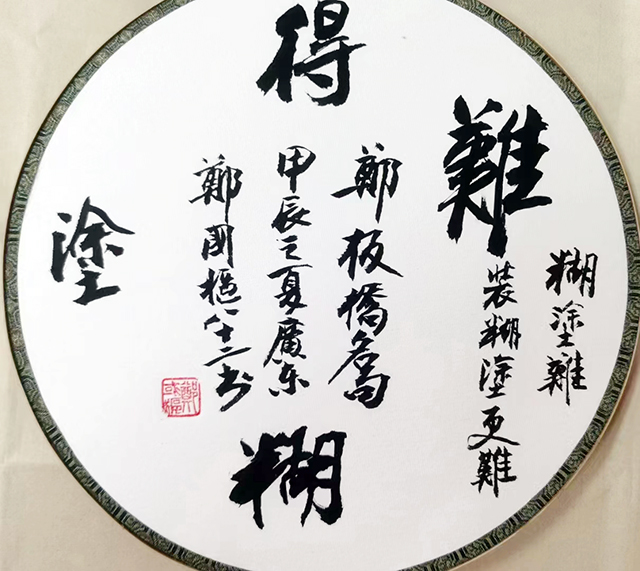 難
得
糊
塗
糊塗難
裝糊塗更難
鄭板橋名句
甲辰之夏廣東
鄭國樞八十二書